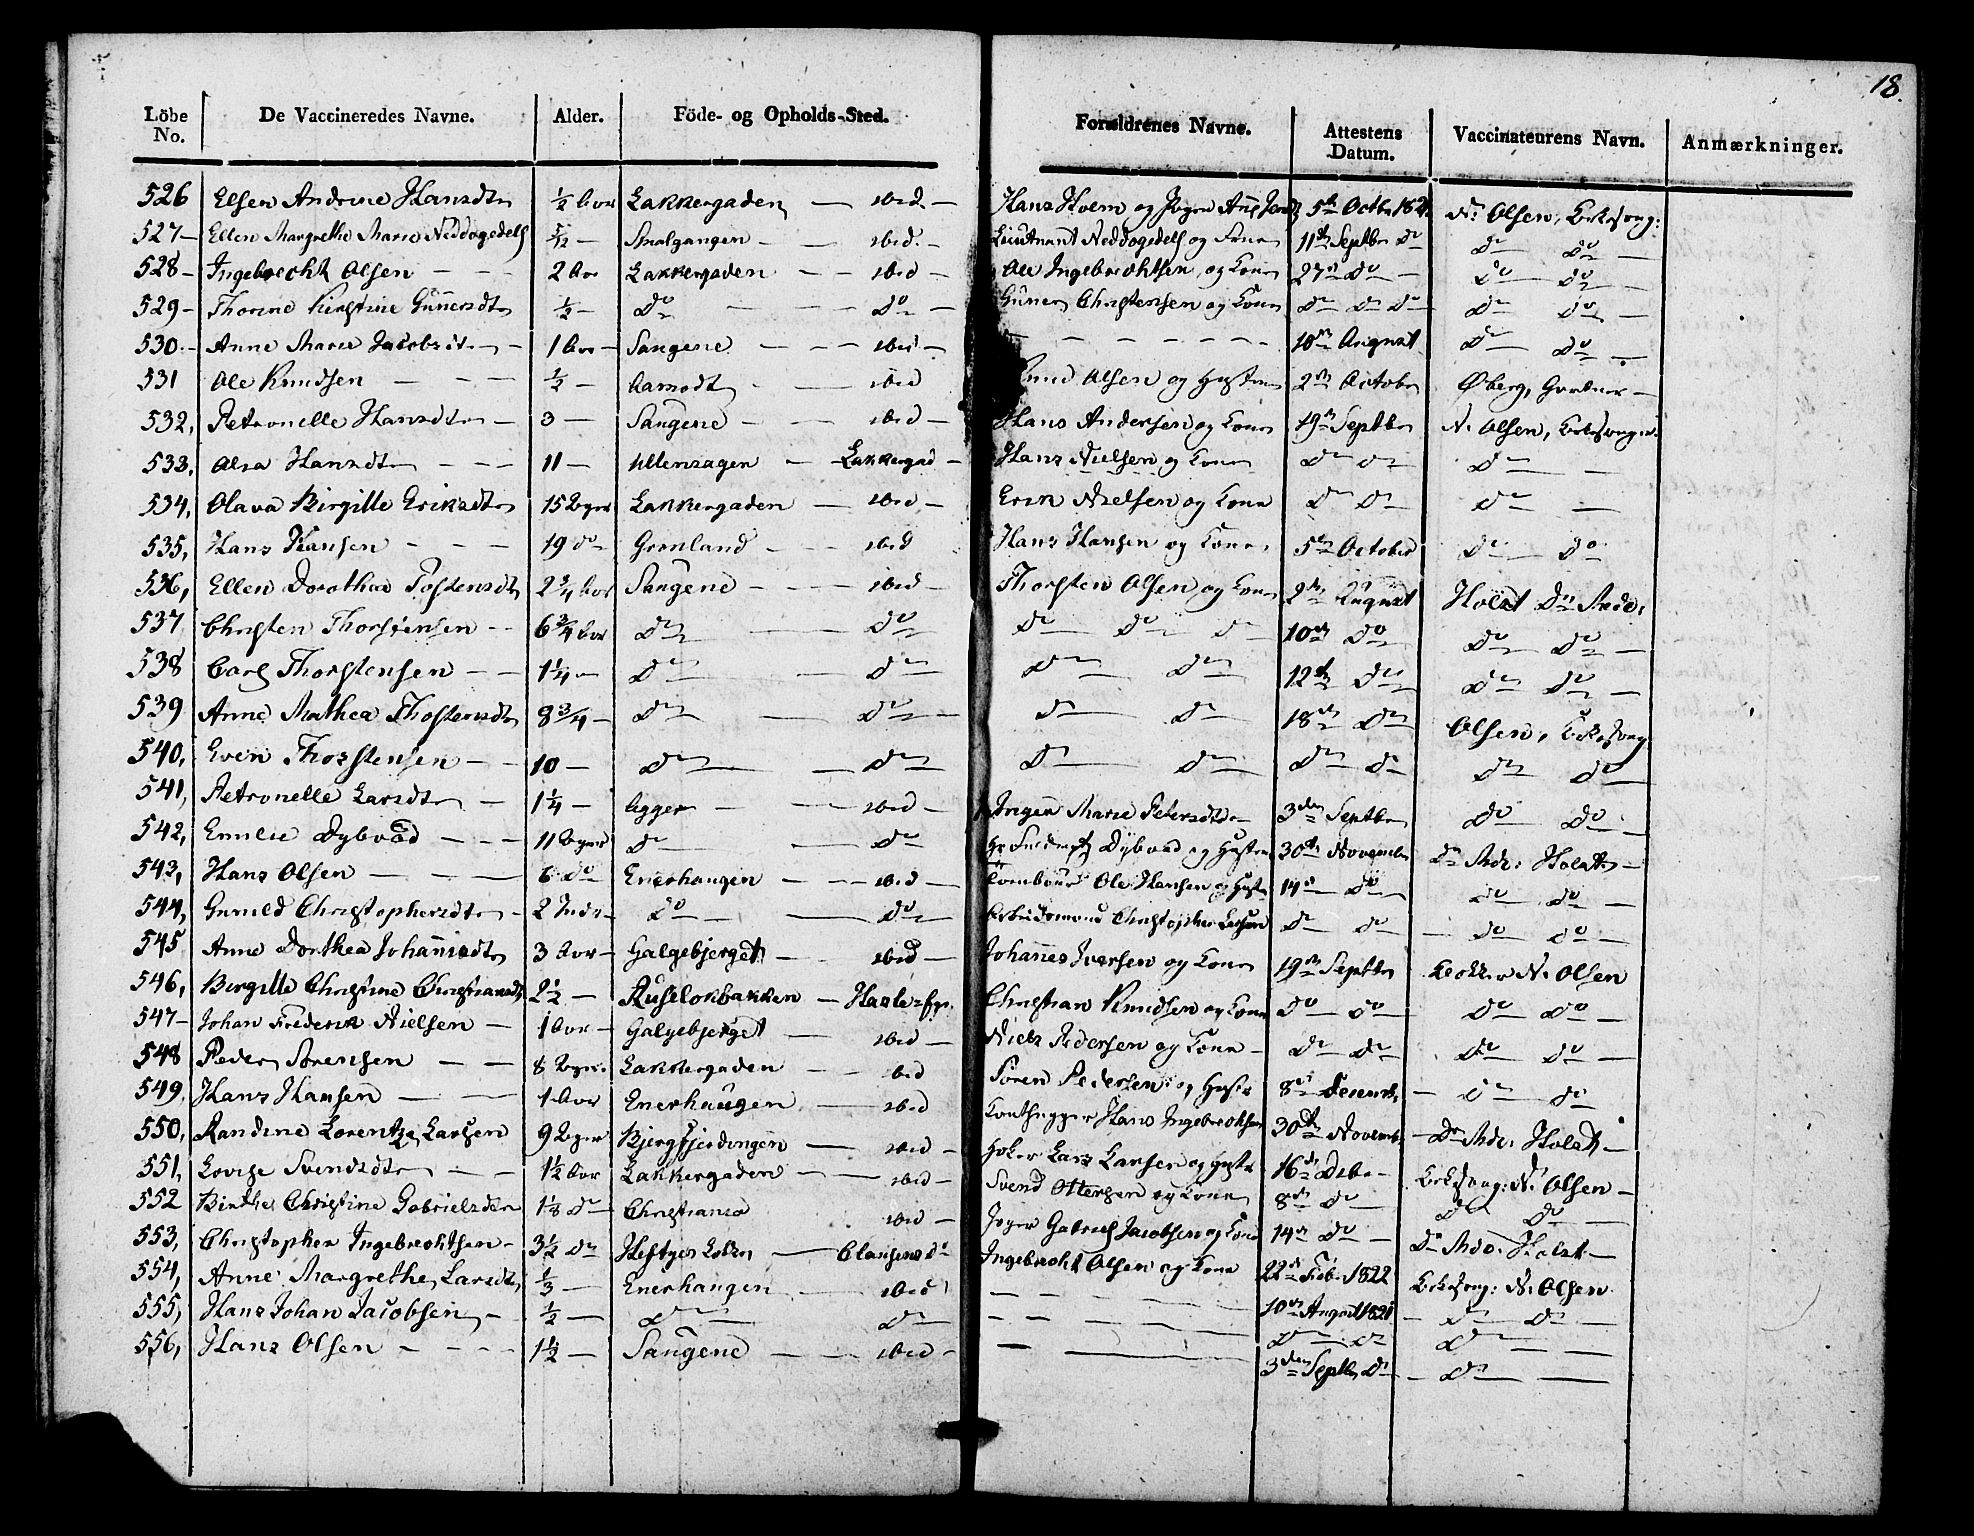 18.
Löbe No. De Vaccineredes Navne. Alder. Föde- og Opholds-Sted. Forældrenes Navne. Attestens Datum. Vaccinateurens Navn. Anmærkninger.
526 Elsen Andrine Hansdtr ½ Aar Lakkergaden — ibid — Hans Hvem og 5te Octbr 1821 N: Olsen, Kirkesang:
527 — Ellen Margrethe Marie Neddegedels 5/12 — Smalgangen — — ibid. — Lieutnant Neddogedels og 11te Septbr do do do —
528 — Ingebrecht Olsen — — — 2 Aar Lakkergaden — — ibid — Ole Ingebrechtsen og Kone 27de do — do do —
529 — Thorine Kirstine Gunersdtr ½ — do — — do — Guner Christensen og Kone do do do do do —
530 — Anne Marie Jacobsdtr — 1 Aar — Sangene — — ibid — — — — — — 10de August do do —
531 Ole Knudsen — — — ½ — — ibid Knud Olsen og Hustru 2den October Øberg, Gartner —
532, Petronelle Hansdtr — 3 — Sangene — — ibid — Hans Andersen og Kone 19de Septbr N. Olsen, Kirkesanger.
533, Olea Hansdtr — — — 11 — Ullensagen — Lakkergad — Hans Nielsen og Kone do do do —
534, Olava Birgitte Eriksdtr 15 Uger Lakkergaden — ibid — Erik Nielsen og Kone do do do —
535, Hans Hansen — — — 19 do — Grønland — — ibid Hans Hansen og Kone 5te October do do
536, Ellen Dorothea Tostensdtr 2¾ Aar Sangene — — ibid — Thorsten Olsen og Kone 2den August Holst Dr Med:
537 Christen Thorstensen — — 6¾ Aar do — do do do do 10de do do do —
538 Carl Thorstensen — — 1¼ — do — do do do 12te do do do —
539 Anne Mathea Thostensdtr 8¾ — do — do — do do 18de do Olsen, Kirkesang
540, Even Thorstensen — — 10 — do — do do do do do do do —
541, Petronelle Larsdtr — 1¼ — Agger — — ibid — Ingen Marie Pedersdtr — 3den Septbr do do —
542, Emilie Dybvad — — — 11 Uger do — do Hr Dybvad og Hustru 30te November Dr Med: Holst —
543, Hans Olsen — — — 6 do Enerhaugen — — ibid — Ole Hansen og Hust 14de do do do —
544, Gunild Christophersdtr — 2 — do — do — Arbeidsmand Christopher Larsen do do — do do —
545 Anne Dorthea Johannisdtr 3 Aar — Galgebjerget — ibid — Johannes Iversen og Kone 19de Septbr Klokker N. Olsen
546, Birgitte Christine Christiansdtr 2½ — Ruseløkbakken — Christian Knudsen og Kone do do do do —
547 — Johan Frederik Nielsen — 1 Aar — Galgebjerget — ibid — Niels Pedersen og Kone — do do do do —
548 Peder Sørensen — — 8 Uger Lakkergaden — ibid Søren Pedersen og Hustr 8de Decemb. — do do
549, Hans Hansen — — 1 Aar Enerhaugen — ibid Hans Ingebrechtsen 30te Novemb. — Dr Med: Holst —
550, Randine Lorentze Larsen 9 Uger Bjergfjerdingen — ibid — Høker Lars Larsen og Hustr 16de Kirkesang: N: Olsen —
551, Lovise Svendsdtr — — 1½ Aar Lakkergaden — — ibid — Svend Ottersen og Kone 8de do do do —
552 Birthe Christine Gabrielsdtr 1⅛ do Christiania ibid — Gabriel Jacobsen og Kone 14de do — Dr Med: Holst —
553, Christopher Ingebrechtsen — 3½ do — Ingebrecht Olsen og Kone 22de Feb. 1822 Kirkesang: N. Olsen.
554, Anne Margrethe Larsdtr ⅓ — Enerhaugen — ibid — — — 10de August 1821 — do do —
555, Hans Johan Jacobsen — ½ — do do — — — do do do —
556, Hans Olsen — — — 1½ — Sangene — — ibid — — — 3den Septbr do — do —